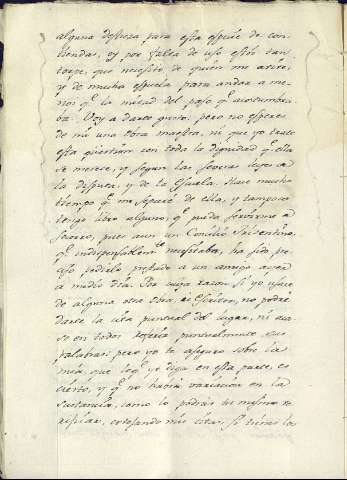 alguna destreza para esta especie de con-
tiendas, oy por falta de uso estoi tan
torpe, que necesito de quien me arrée,
y de mucha espuela para andar a me-
nos q.e la mitad del paso q.e acostumbra-
ba. Voy a darte gusto. pero no esperes
de mi una obra maestra, ni que yo trate
esta question con toda la dignidad q.e ella
se merece, y segun las severas leyes de
la disputa, y de la Escuela. Hace mucho
tiempo q.e me separé de ella, y tampoco
tengo libro alguno, q.e pueda servirme de
socorro, pues aun un Concilio Tridentino,
q.e indispensablem.te necesitaba, ha sido pre-
ciso pedirlo prestado a un amigo ayer
a medio dia. Por cuya razon si yo usare
de alguna otra cita, ò Escritor, no podré
darte la cita puntual del lugar, ni aca-
so en todos referir puntualmente sus
palabras; pero yo te aseguro sobre la
mia, que lo q.e yo diga en esta parte, es
cierto, y q.e no habrá variacion en la
sustancia, como lo podrás tu mismo ve-
rificar, cotejando mis citas, si tienes los